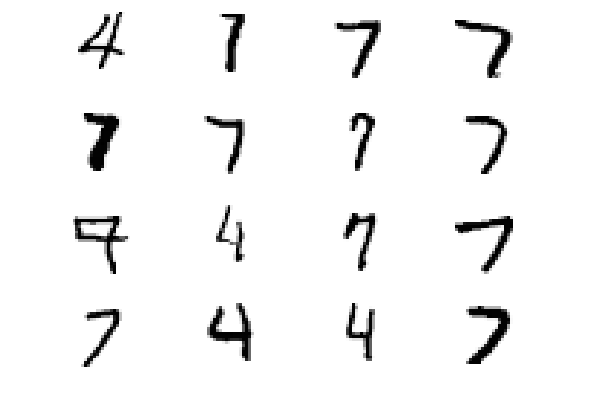 4 7 7 7
7 7 7 7
7 4 7 7
7 4 4 7